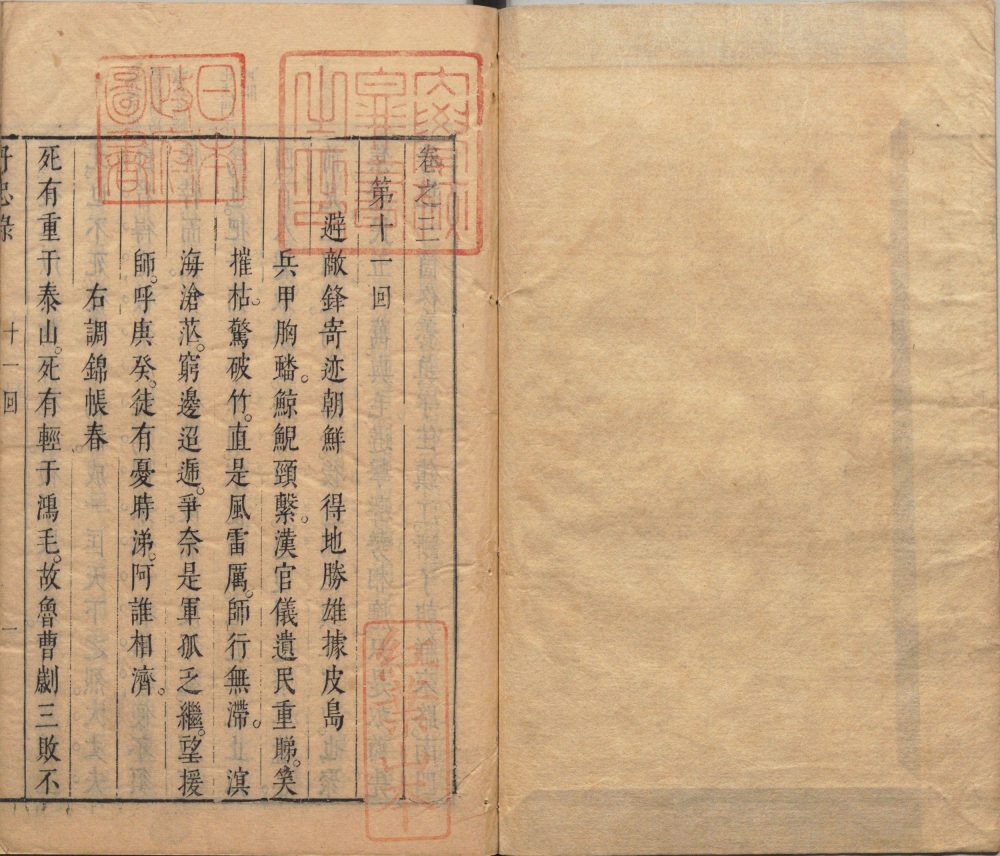 卷之三
第十一回
避敵鋒寄迹朝鮮　得地勝雄據皮島
兵甲胸蟠。鯨鯢頸繫。漢官儀遺民重睇。笑
摧枯。驚破竹。直是風雷厲。師行無滯。　溟
海滄茫。窮邊迢遞。爭奈是軍孤乏繼。望援
師。呼庚癸。徒有憂時涕。阿誰相濟。
右調錦帳春
死有重于泰山。死有輕于鴻毛。故魯曹劌三敗不
十一回
一
日本
政府
圖書